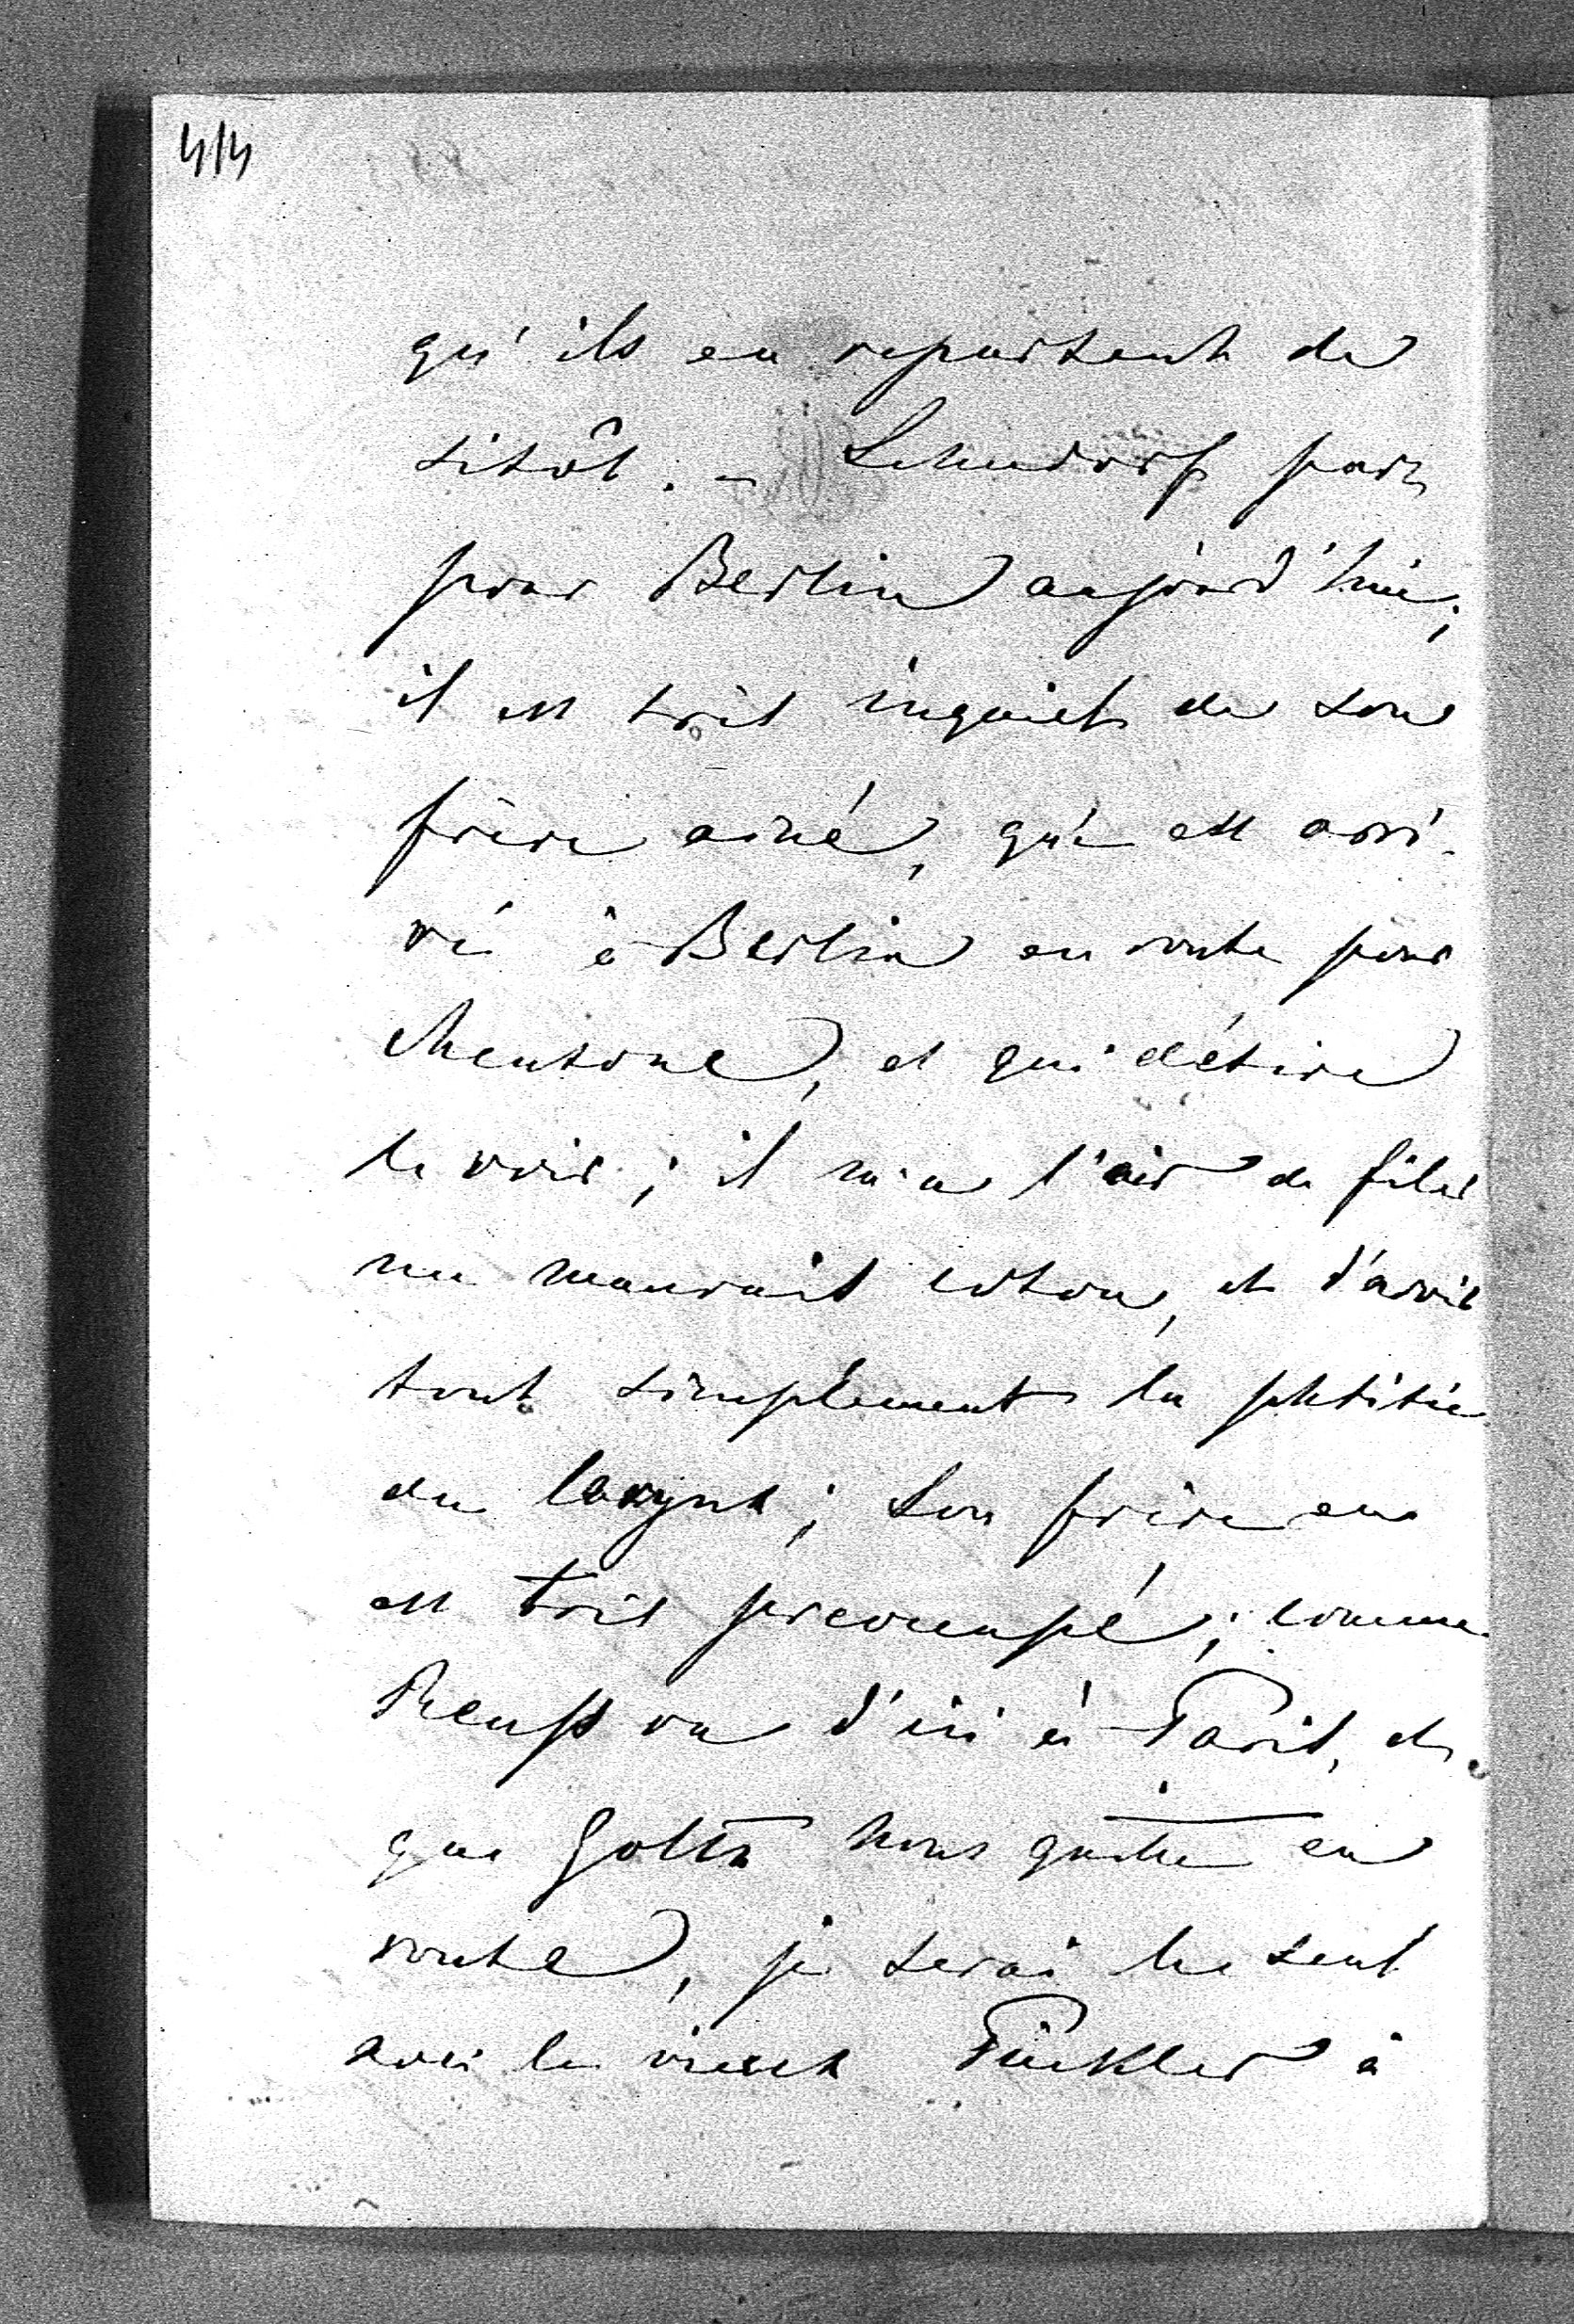 414
qu'ils en repartent de
sitôt. – Lehndorf part
pour Berlin aujourd'hui;
il est très inquiet de son
frère ainé, qui est arri-
vé à Berlin en route pour
Mentone, et qui désire
le voir; il m'a l'air de filer
un mauvais coton, et d'avoir
tout simplement la phtisie
du larynx; son frère en
est très preoccupé; comme
Reuss va d'ici à Paris, et
que Goltz nous quitte en
route, je serai le seul
avec le vieux Pückler à